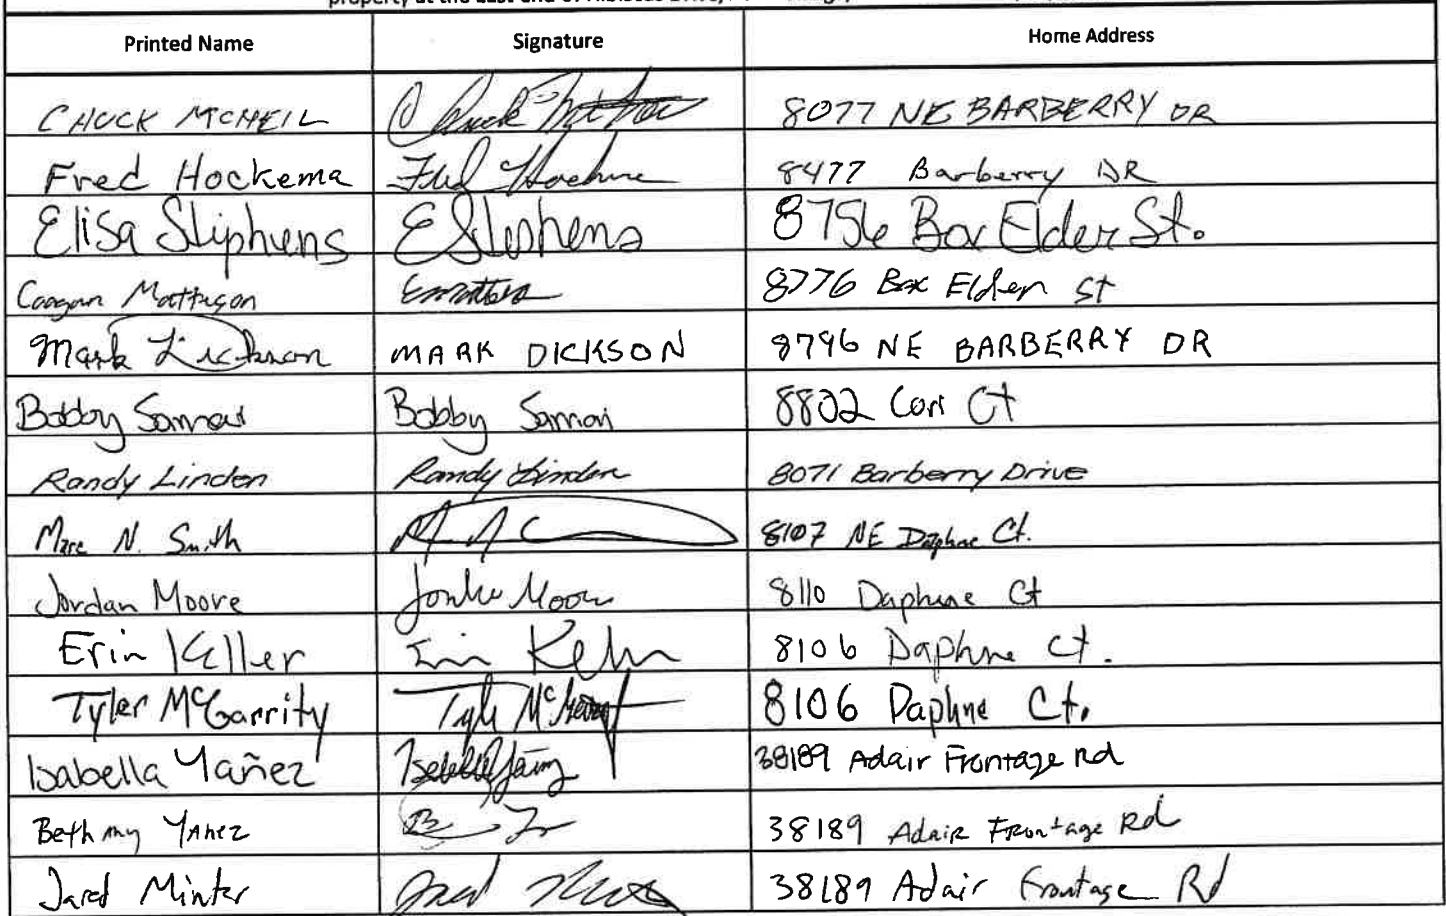 property at the East end of Hibiscus Drive,
Printed Name Signature Home Address
CHUCK MCNEIL Chuck 8077 NE BARBERRY DR
Fred Hockema Fred Hockema 8477 Barberry DR
Elisa Stiphens E Stephens 8756 Box Elder St.
Mattison 8776 Box Elder St
Mark Dickson MARK DICKSON 8796 NE BARBERRY DR
Bobby Bobby 8802 Cori Ct
Randy Linden Randy Linden 8071 Barberry Drive
Marc N. Smith 8107 NE Daphne Ct.
Jordan Moore Moore 8110 Daphne Ct
Erin Keller Erin Keller 8106 Daphne Ct.
Tyler McGarrity Tyler McGarrity 8106 Daphne Ct.
Isabella Yañez Isabella Yañez 38189 Adair Frontage Rd
Bethany Yanez 38189 Adair Frontage Rd
Jared Minter Jared 38189 Adair Frontage Rd